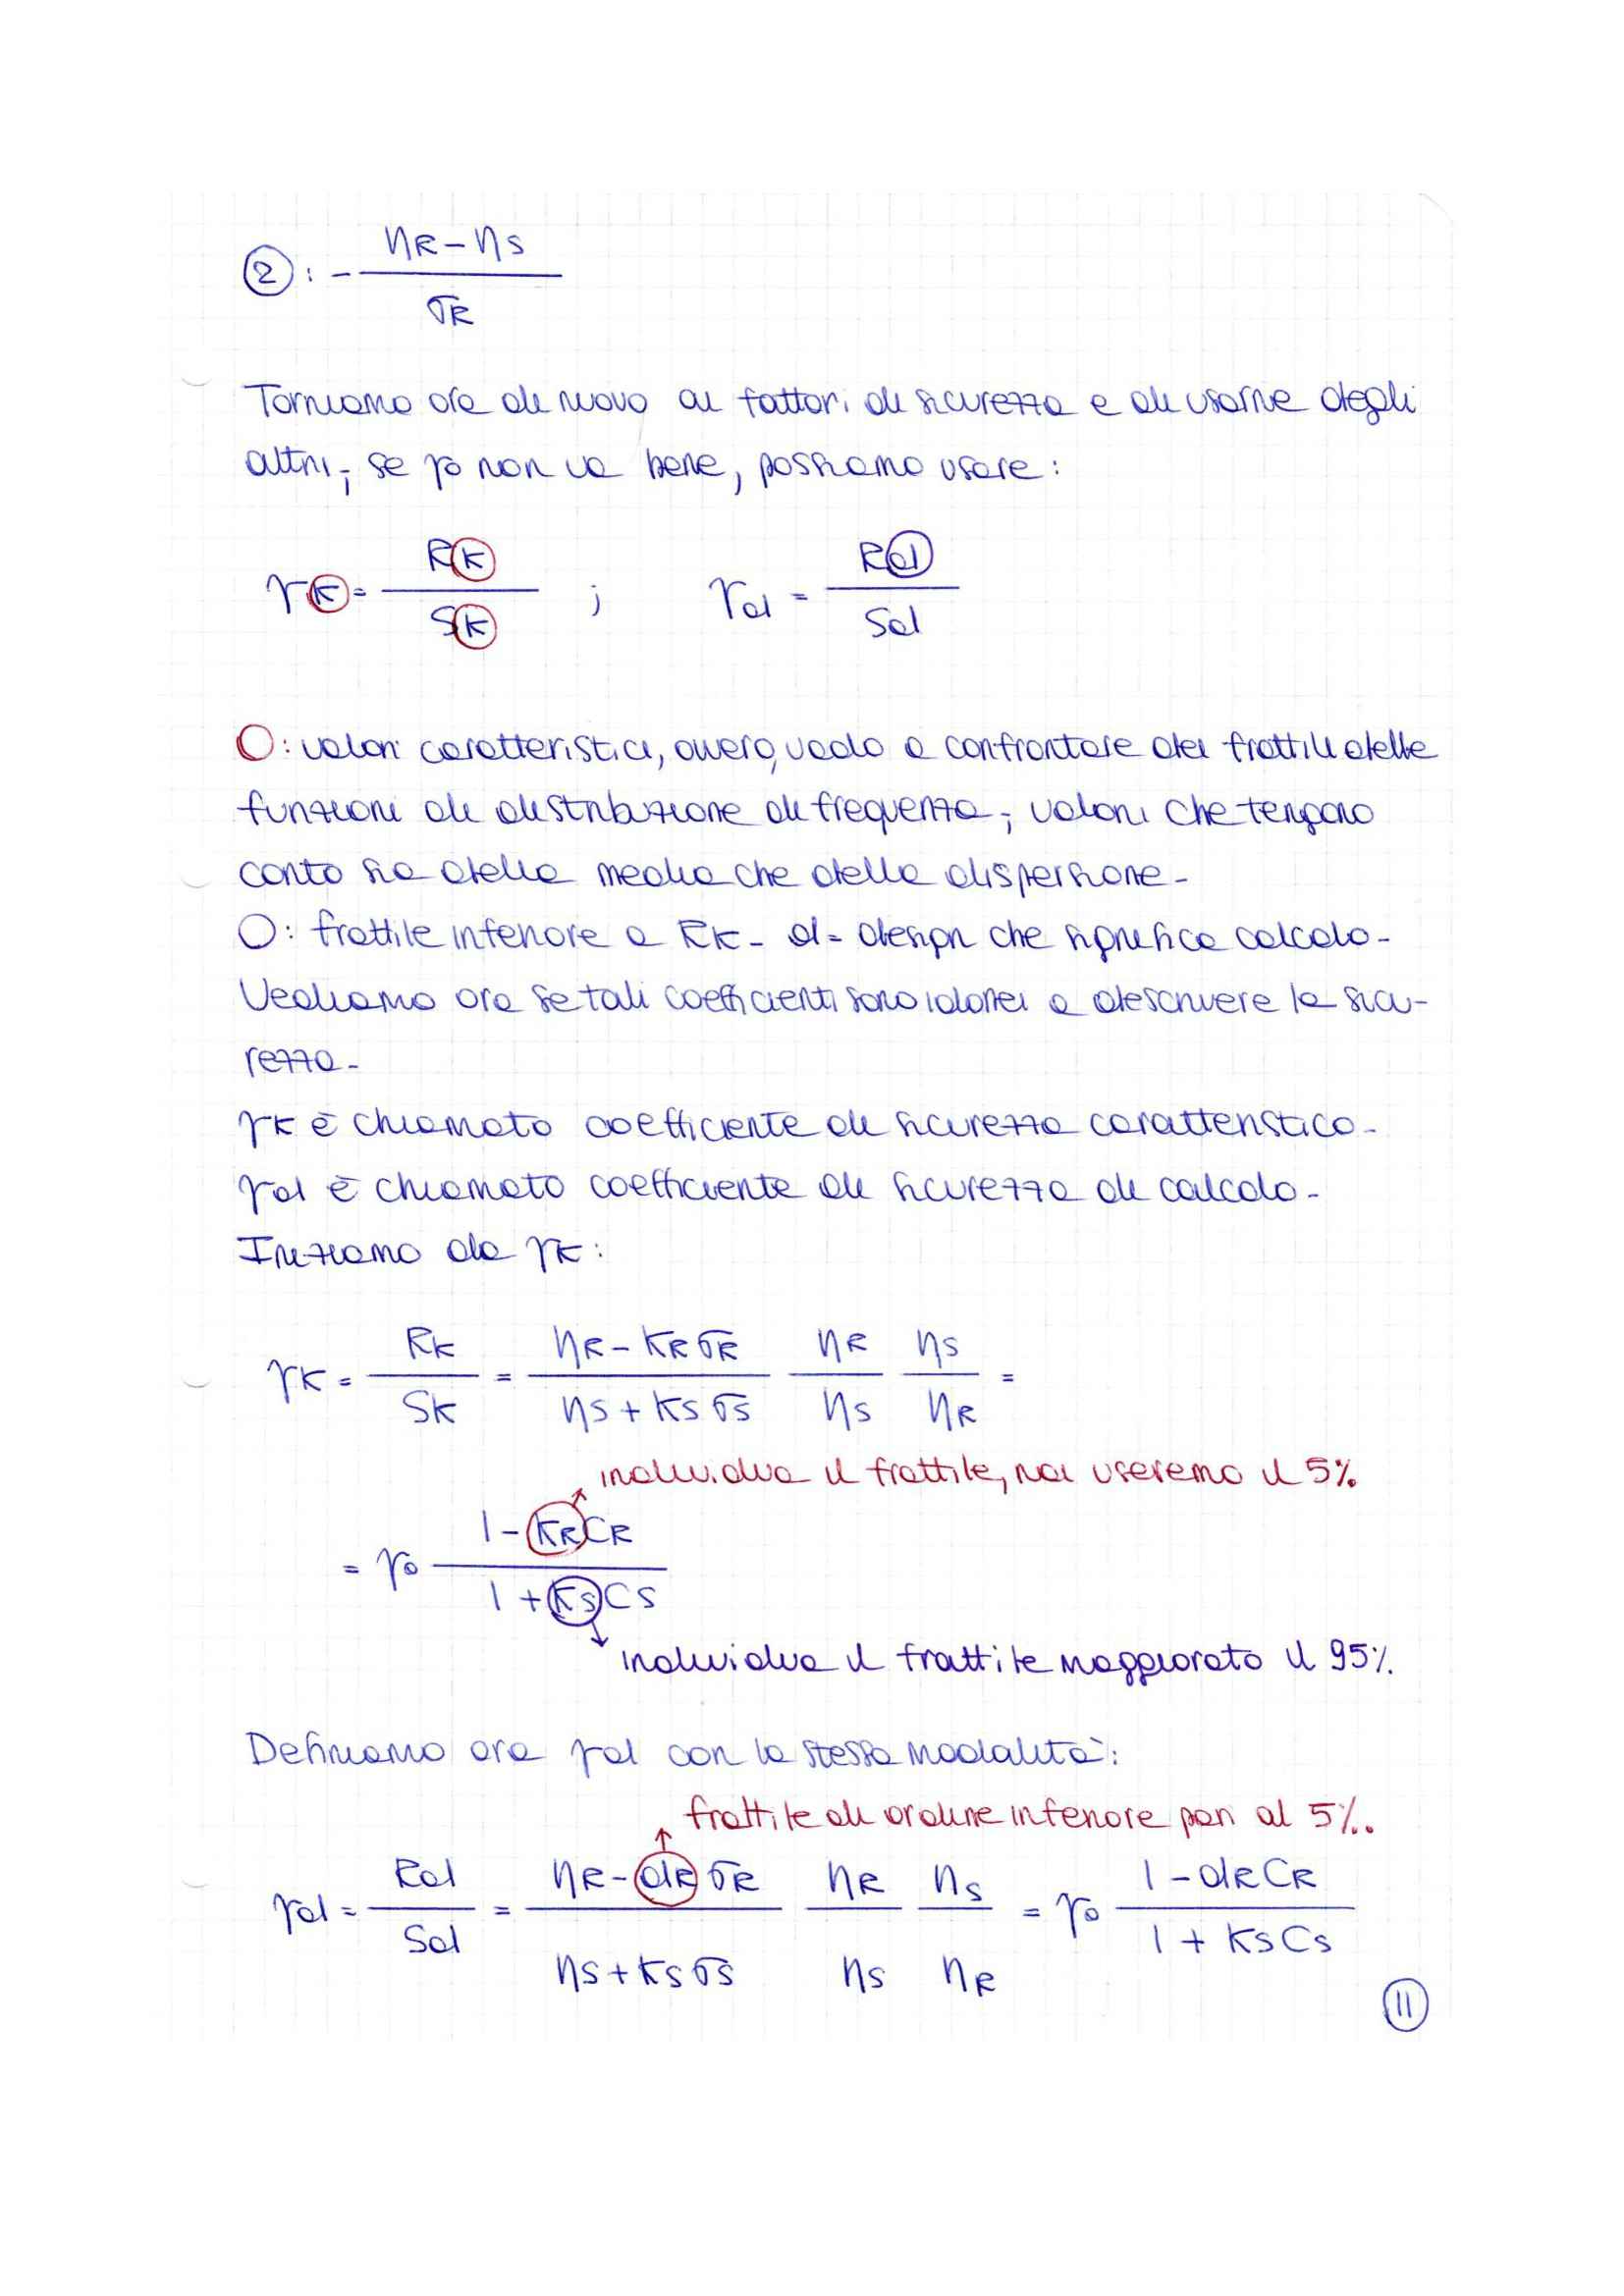 ②: - (ηR - ηS) / σR
Torniamo ora di nuovo ai fattori di sicurezza e di usarne degli
altri; se γo non va bene, possiamo usare:
γK = RK / SK ; γd = Rd / Sd
O: valori caratteristici, ovvero, vado a confrontare dei frattili delle
funzioni di distribuzione di frequenza; valori che tengano
conto sia della media che della dispersione-
O: frattile inferiore a RK- d= design che significa calcolo-
Vediamo ora se tali coefficienti sono idonei a descrivere la sicu-
rezza-
γK è chiamato coefficiente di sicurezza caratteristico-
γd è chiamato coefficiente di sicurezza di calcolo-
Iniziamo da γK:
γK = RK / SK = (ηR - KR σR) / (ηS + KS σS) ηR / ηS ηS / ηR =
individua il frattile, noi useremo il 5%
= γo (1 - KR CR) / (1 + KS CS)
individua il frattile maggiorato il 95%
Definiamo ora γd con la stessa modalità:
frattile di ordine inferiore pari al 5‰
γd = Rd / Sd = (ηR - dR σR) / (ηS + KS σS) ηR / ηS ηS / ηR = γo (1 - dR CR) / (1 + KS CS)
11